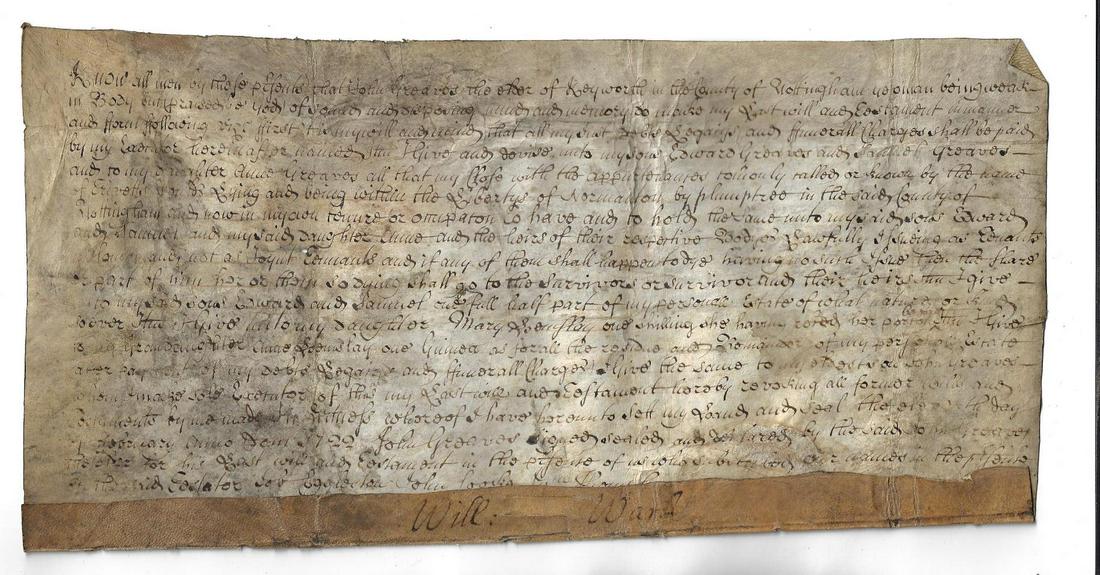 Know all men by these psents that John Greaves the elder of Keyworth in the County of Nottingham yeoman being weak
in Body but praised be God of sound and disposing mind and memory do make my Last will and Testament in manner
and form following viz first it is my will and mind that all my just Debts Legacys and ffunerall Charges shall be paid
by my Executor hereinafter named Itm I Give and devise unto my sons Edward Greaves and Samuel Greaves
and to my daughter Anne Greaves all that my Close with the appurtenances comonly called or known by the name
of Lying and being within the Libertys of Normanton by plumptree in the said County of
Nottingham and now in my own tenure or occupation To have and to hold the same unto my said sons Edward
and Samuel and my said daughter Anne and the heirs of their respective Bodys Lawfully Issuing as Tenants
in Comon and not as Joynt Tennants and if any of them shall happen to dye having no such Issue then the share
or part of him her or them so dying shall go to the survivors or survivor and their heirs Itm I give
unto my said sons Edward and Samuel one full half part of my personall Estate of what nature or kind
soever Itm I Give unto my daughter Mary one shilling she having reced her portion Itm I Give
to my Grandaughter Anne one Guinea as for all the residue and Remainder of my personall Estate
after payment of my debts Legacys and ffunerall Charges I Give the same to my John Greaves
whom I make sole Executor of this my Last will and Testament hereby revoking all former wills and
Testaments by me made In Witness whereof I have hereunto sett my hand and seal the day
of february Anno Dom 1722 John Greaves signed sealed and declared by the said John Greaves
the elder for his Last will and Testament in the psence of us who subscribed our names in the psence
of the said Testator John
Will: Ward